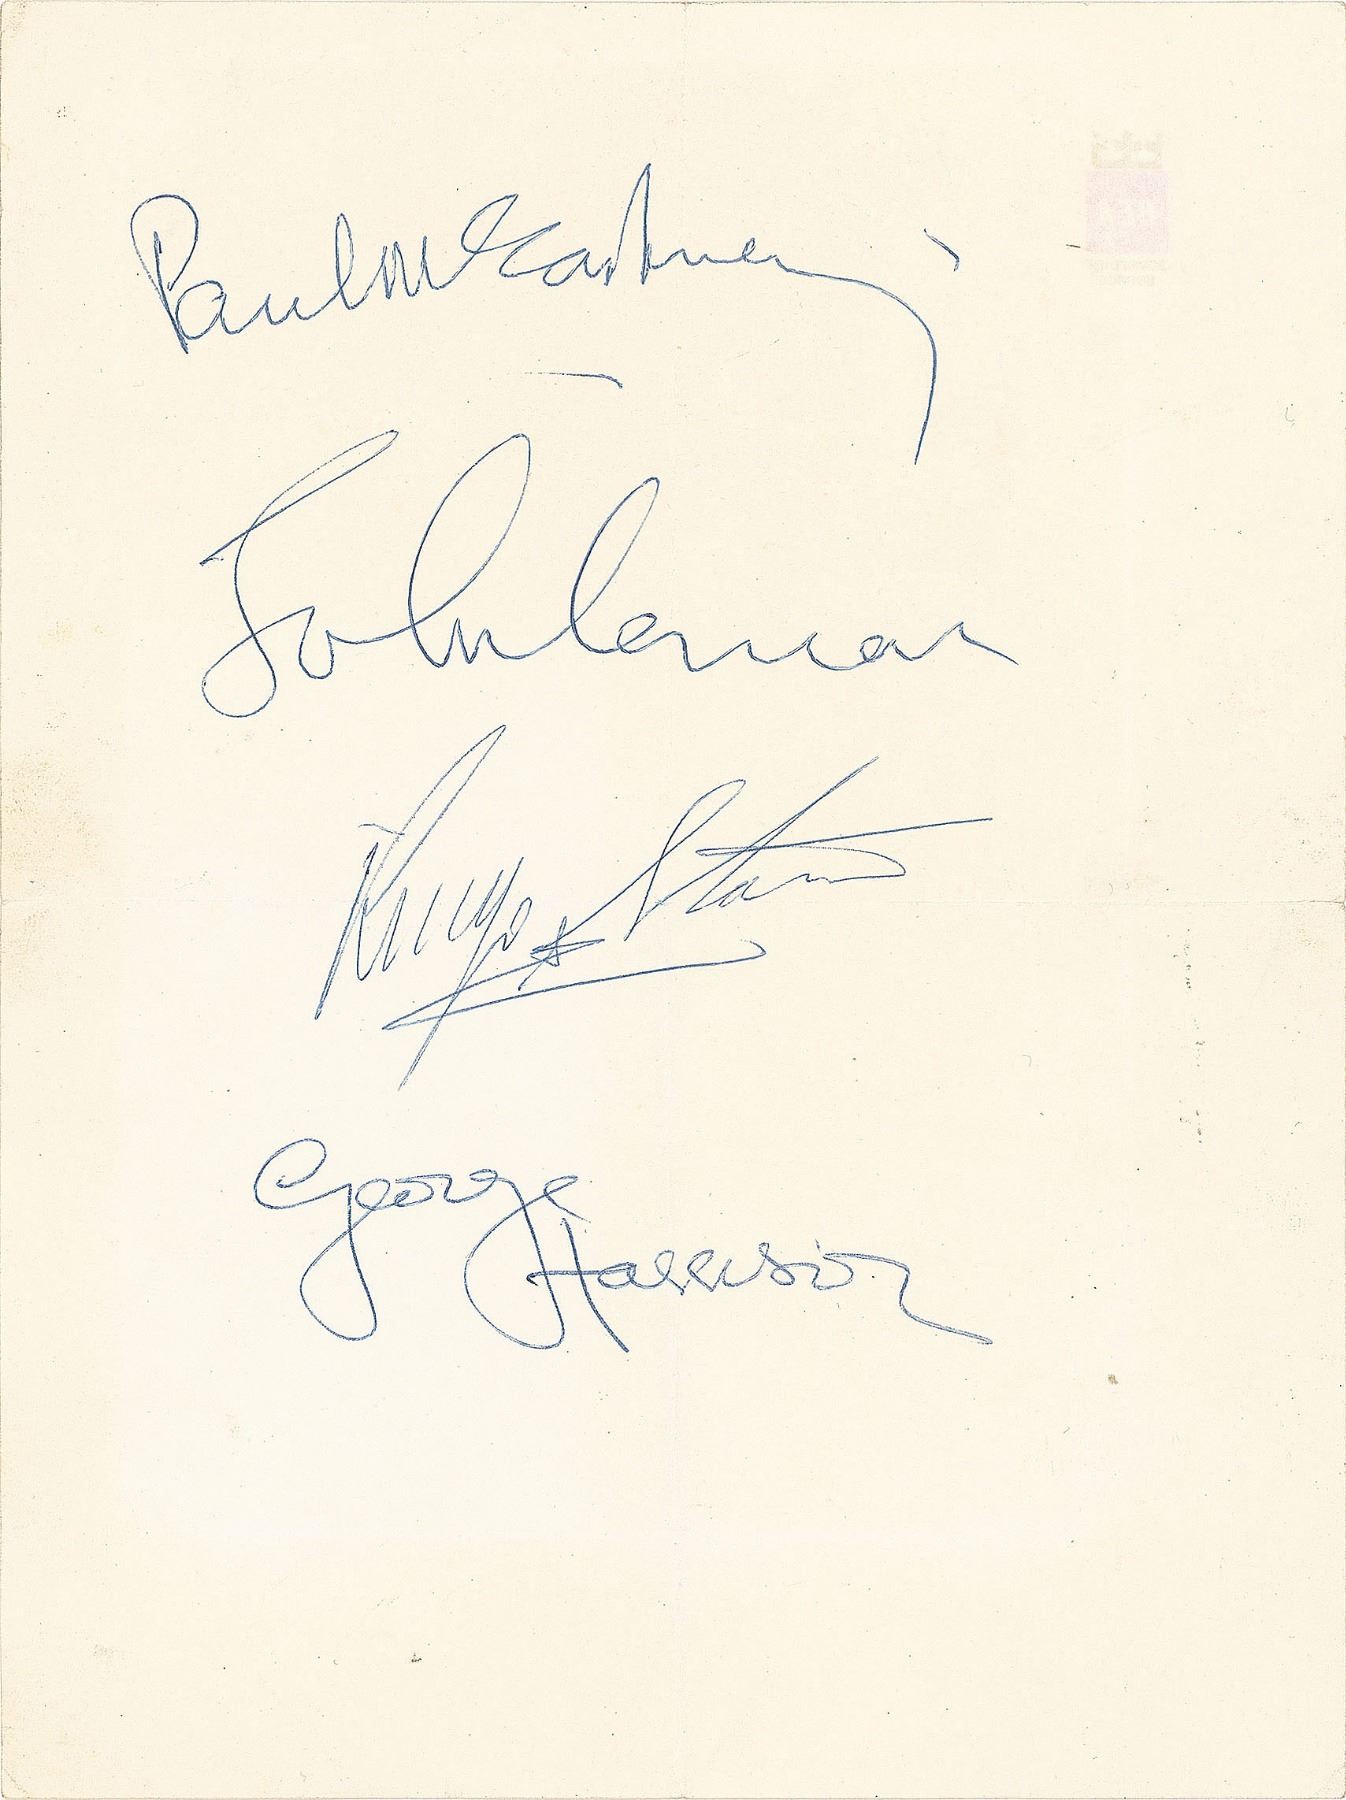 Paul McCartney
John Lennon
Ringo Starr
George
Harrison